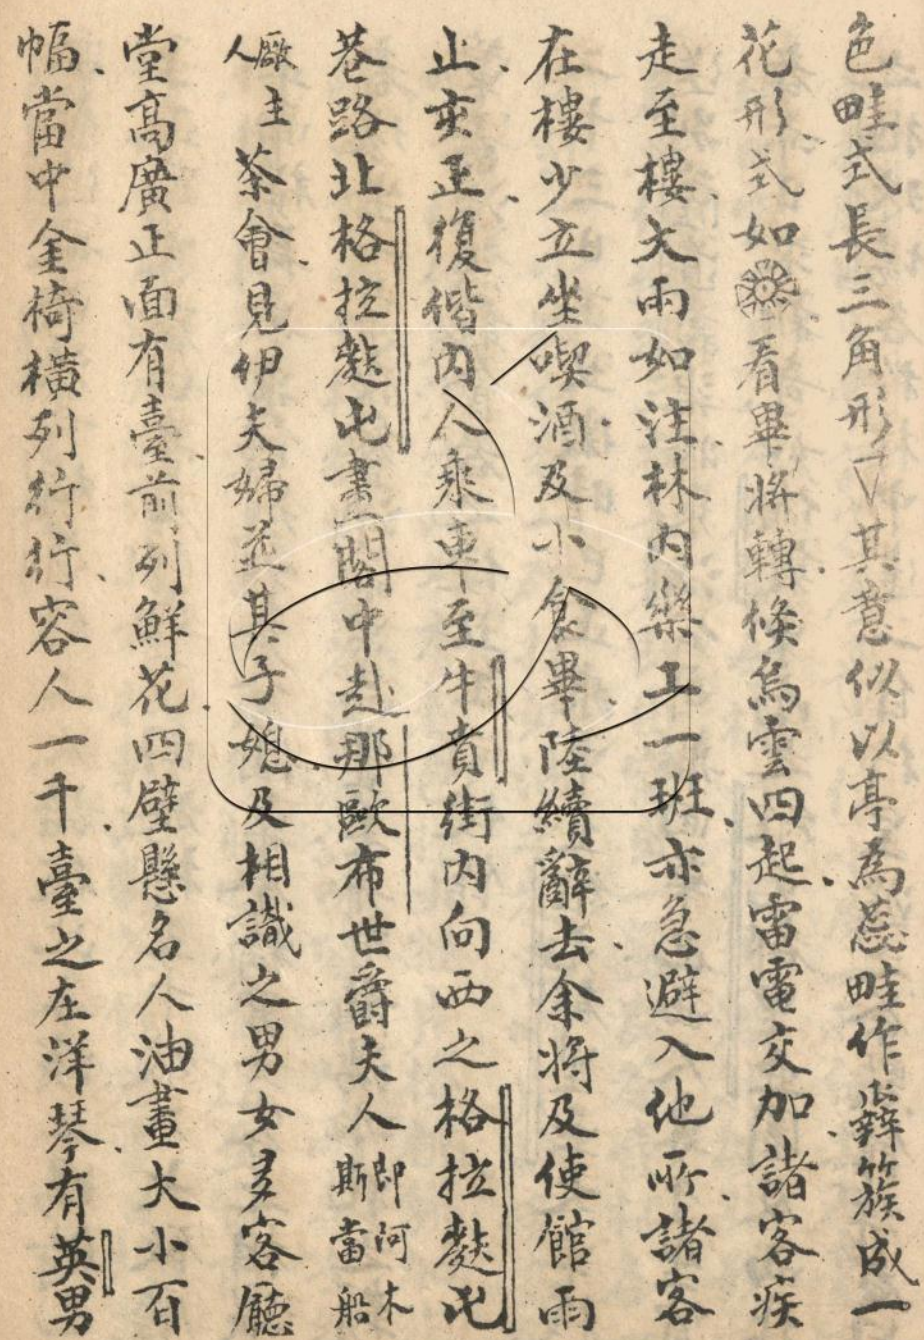 色畦式長三角形▽其意似以亭為蕊畦作瓣簇成一
花形式如看畢將轉倏烏雲四起雷電交加諸客疾
走至樓大雨如注林內樂工一班亦急避入他所諸客
在樓少立坐喫酒及小食畢陸續辭去余將及使館雨
止亥正復偕內人乘車至牛賁街內向西之格拉麩屯
巷路北格拉麩屯畫閣中赴那歐布世爵夫人即河木斯當船
廠主人茶會見伊夫婦並其子媳及相識之男女多客廳
堂高廣正面有臺前列鮮花四壁懸名人油畫大小百
幅當中金椅橫列行行容人一千臺之左洋琴有英男